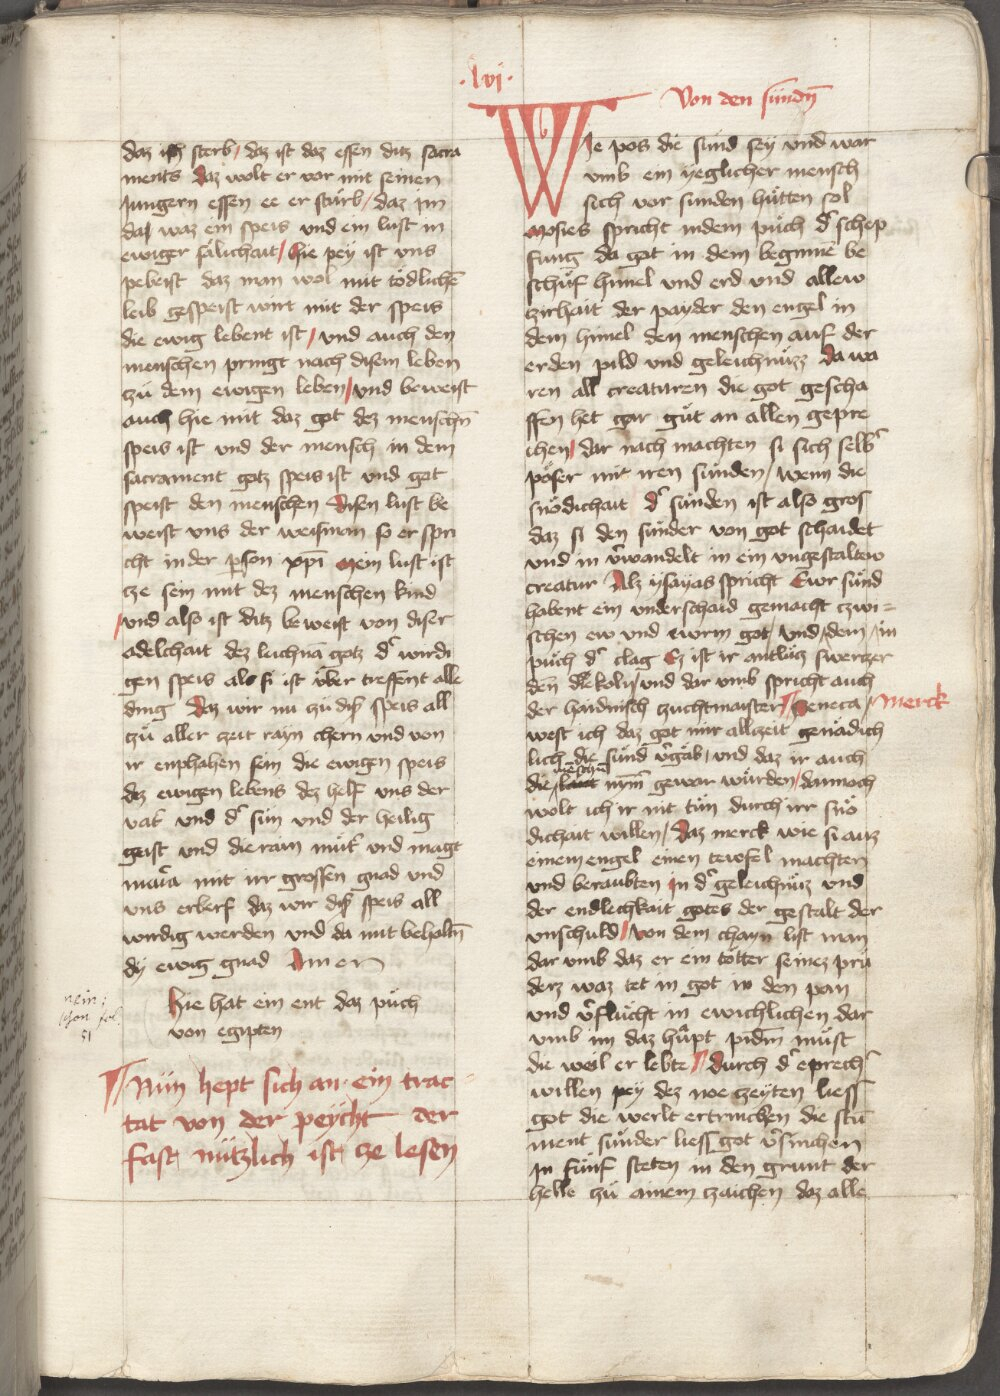 .lvi.
daz ich sterb / daz ist daz essen ditz sacra
ments Daz wolt er vor mit seinen
Jungern essen ee er stürb / daz im
daz waz ein speis und ein lust in
ewiger sälichait / Hie pey ist uns
peweist daz man wol mit tödlichē
leib gespeist wirt mit der speis
die ewig lebent ist / und auch den
menschen pringt nach disem leben
zů dem ewigen leben / und beweist
auch hie mit daz got dez menschn̄
speis ist und der mensch in dem
sacrament gotz speis ist und got
speist den menschen Disen lust be
weist uns der weisman so er spri
cht in der pson xpi Mein lust ist
cze sein mit dez menschen kind
/ und also ist ditz beweist von diser
adelchait dez leichnā gotz d' wirdi
gen speis als si ist über treffent alle
ding Daz wir nu zů dis' speis all
zů aller zeit rayn chern und von
ir enphahen sein die ewigen speis
dez ewigen lebens dez helf uns der
vat' und d' sun und der heilig
geist und die rain můt' und magt
maria mit irr grossen gnad und
uns erberf daz wir dis' speis all
wirdig werden und da mit behaltn̄
dy ewig gnad Amen
Hie hat ein ent daz půch
von egipten
nein;
schon fol.
51
¶ Nün hept sich an ein trac
tat von der peycht der
fast nützlich ist ze lesen
Von den sündn̄
WIe pos die sünd sey und war
umb ein yeglicher mensch
sich vor sunden hütten sol
Moyses spricht in dem půch d' schep
fung da got in dem beginnē be
schüf himel und erd und allew
zirhait der payder den engel in
dem himel den menschen auf der
erden pild und geleichnüzz Da wa
ren all creaturen die got gescha
ffen het gar gůt an allen gepre
chen / dar nach machten si sich selb'
pöser mit iren sünden / wenn die
snödichait d' sünden ist also gros
daz si den sünder von got schaidet
und in v'wandelt in ein ungestaltew
creatur Alz ysayas spricht Ewr sünd
habent ein underschaid gemacht czwi=
schen ew und ewrm got / und / dem / in
půch d' clag Ez ist ir antlütz swerczer
den die koln / und dar umb spricht auch
der haidnisch zuchtmaister / Seneca / Merck
west ich daz got mir allczeit genädich
lich die sünd v'gäb / und daz ir auch
menschn̄
die laüt nym̄ gewar würden / dannoch
wolt ich ir nit tün durch irr snö
dichait willen / Daz merck wie si auz
einem engel einen tewfel machten
und beraubten in d' geleichnüz und
der endlichkait gotes der gestalt der
unschuld / Von dem chayn list man
dar umb daz er ein tötter seinez prů
derz waz tet in got in den pan
und v'flücht in ewichlichen dar
umb im daz haüpt pidm̄ müst
die weil er lebte ¶ durch d' eprech'
willen pey dez noe czeyten liess
got die werlt ertrincken die stu
ment sünder liess got v'sinchen
in fünf steten in den grunt der
helle zů ainem czaichen daz alle